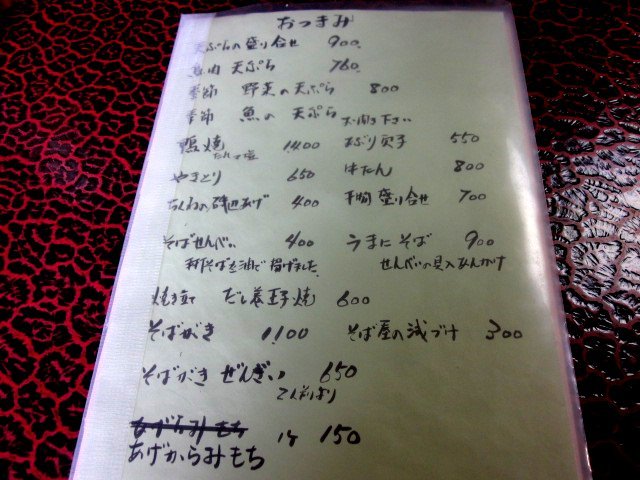 おつまみ
天ぷらの盛り合せ 900
鳥肉 天ぷら 760
季節 野菜の天ぷら 800
季節 魚の 天ぷら お聞き下さい
鴨焼 1400 あぶり貝子 550
たれ・塩
やきとり 650 牛たん 800
ちくわの磯辺あげ 400 干物盛り合せ 700
そばせんべい 400 うまにそば 900
そばを油で揚げました せんべいの具入あんかけ
焼き立て だし巻玉子焼 600
そばがき 1100 そば屋の浅づけ 300
そばがき ぜんざい 650
二人前より
あげからみもち 1ケ 150